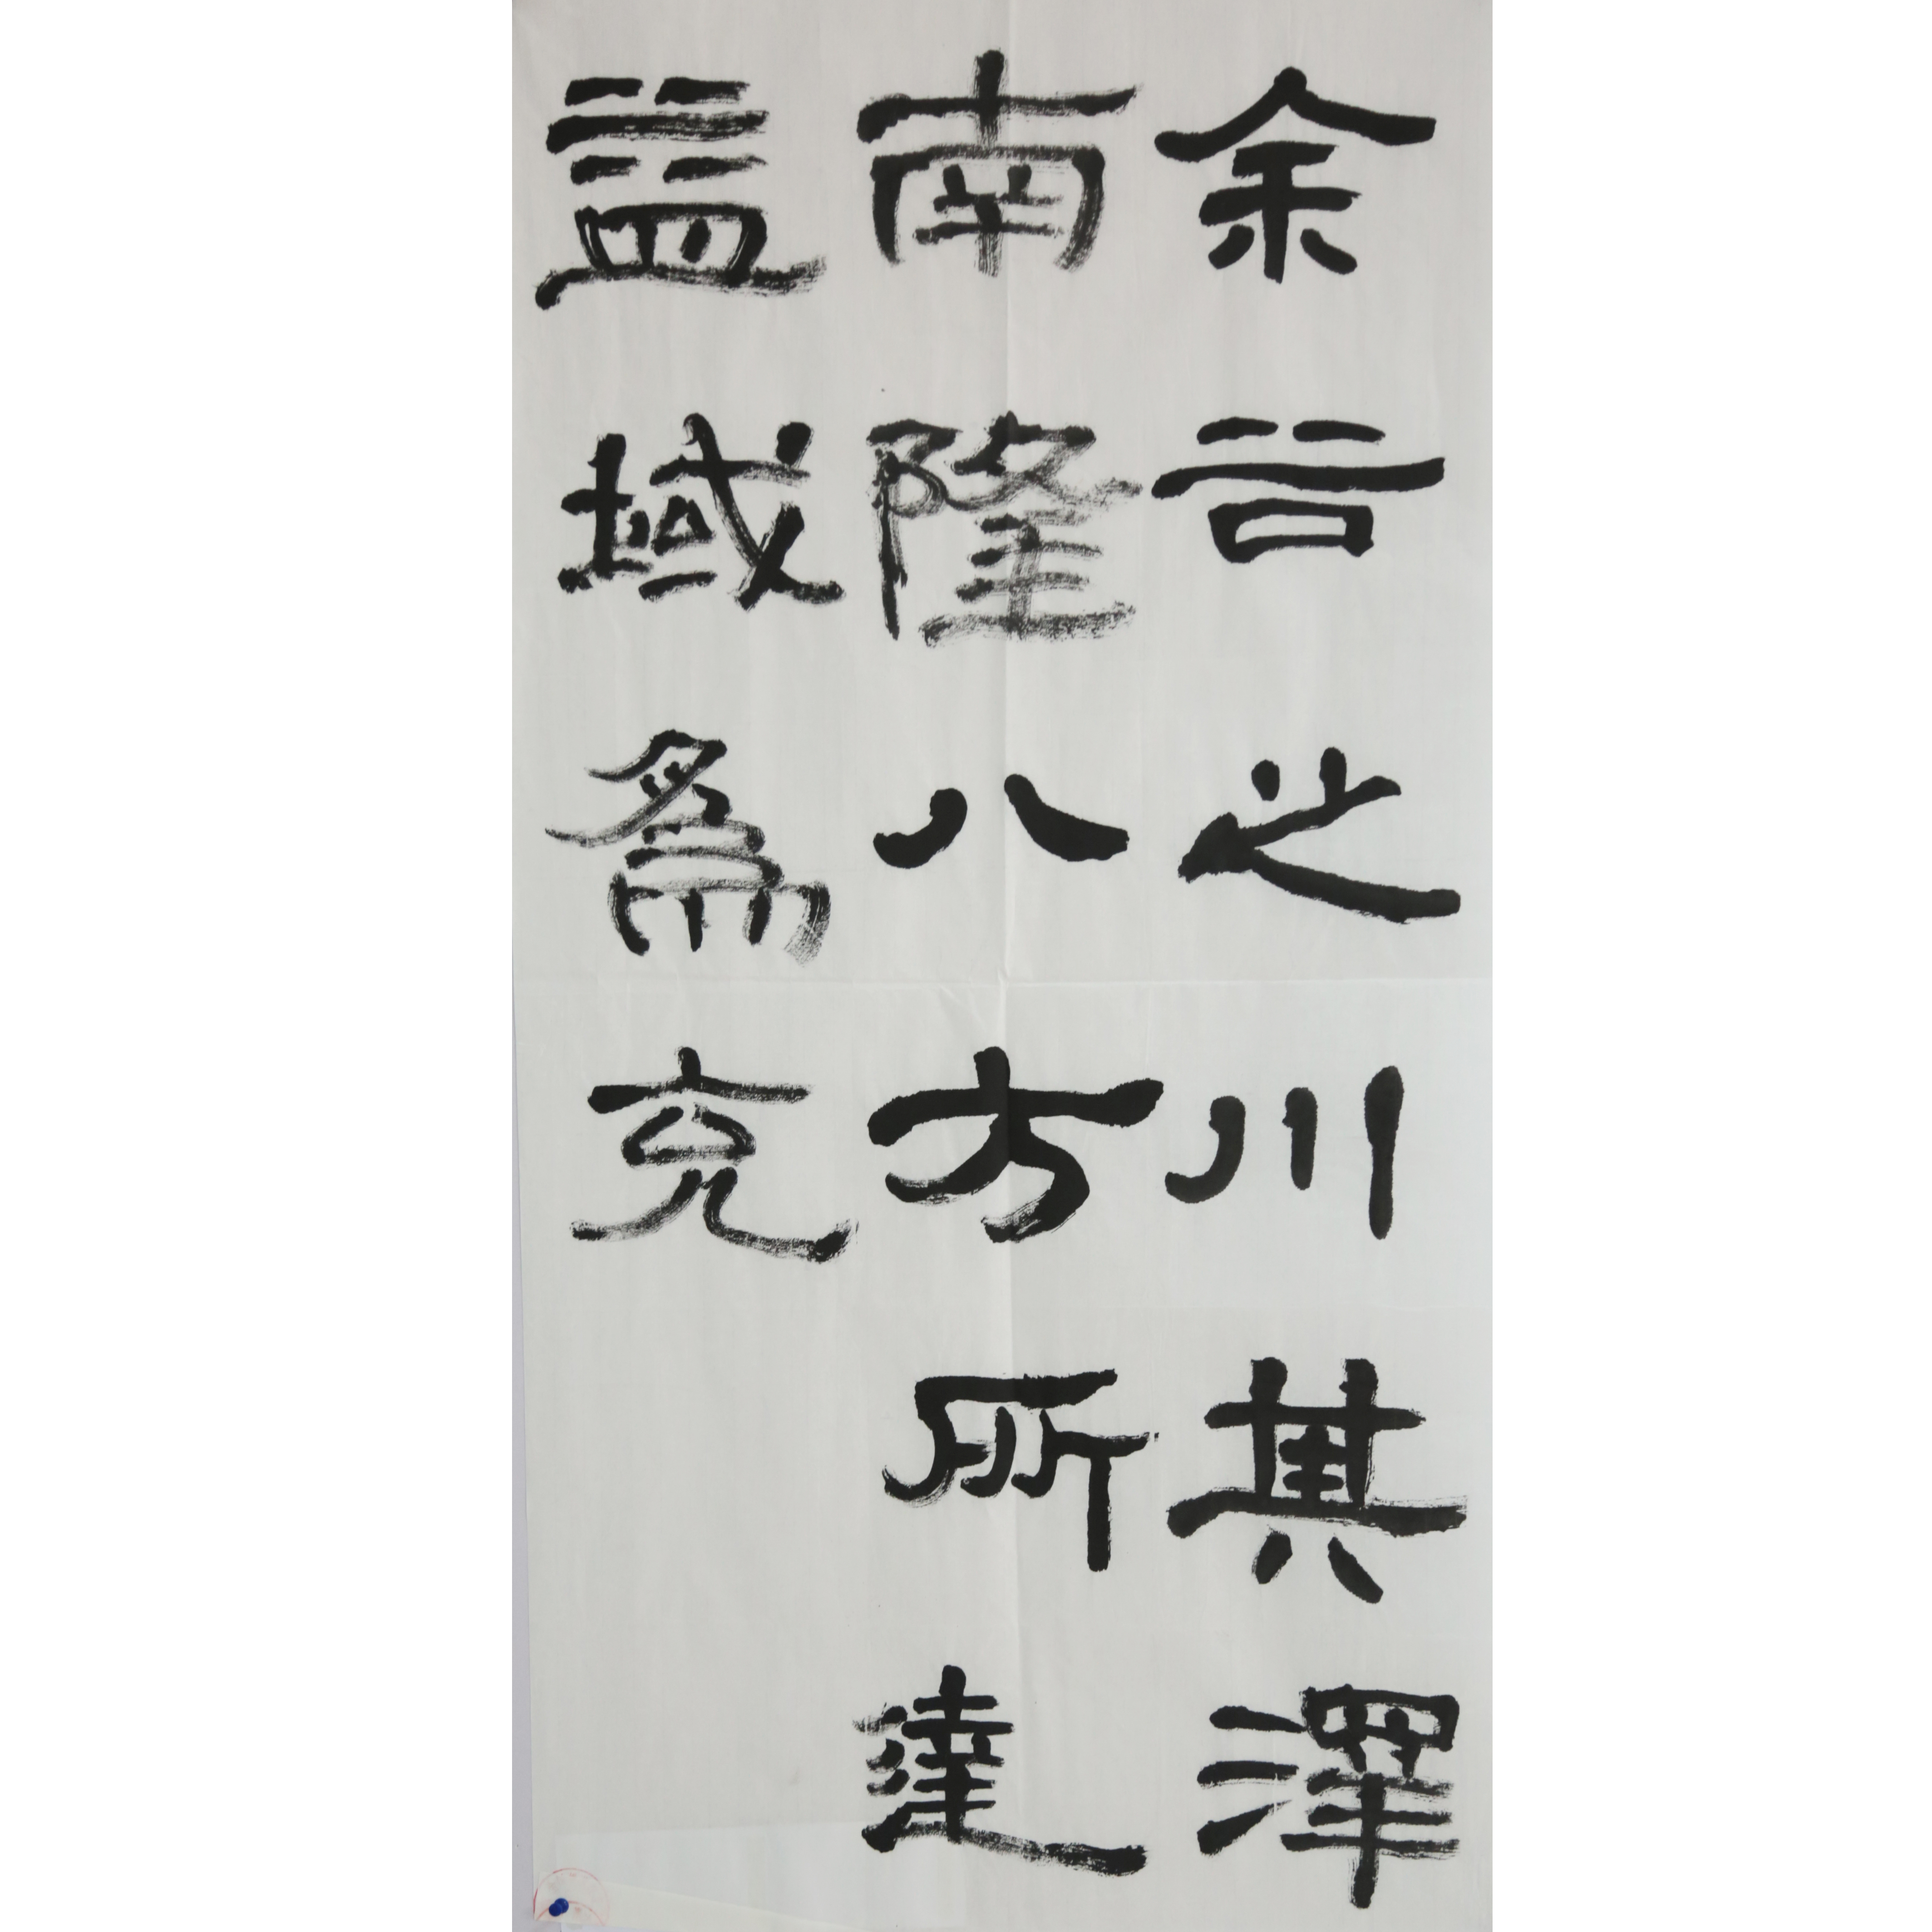 余谷之川其澤
南隆八方所達
益域爲充